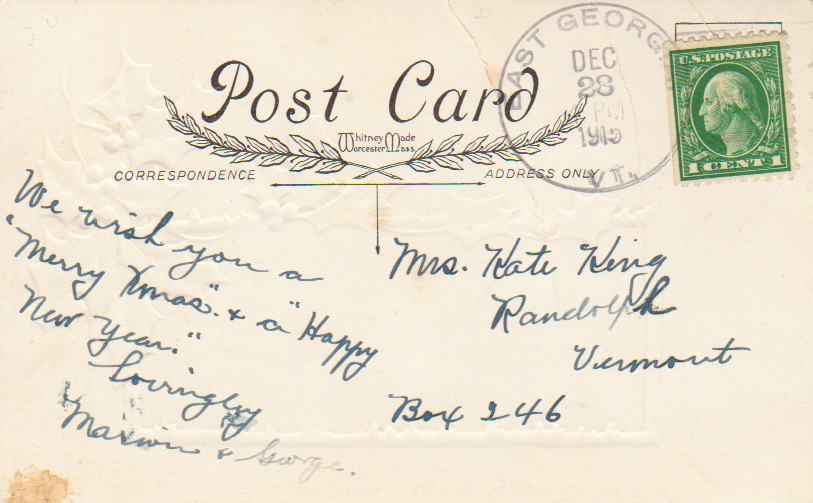 Post Card
Whitney Made
Worcester Mass.
CORRESPONDENCE
ADDRESS ONLY
EAST GEORG
DEC
28
PM
VT.
U.S. POSTAGE
1 CENT 1
We wish you a
"Merry Xmas" & a "Happy
New Year."
Lovingly
Marwin & George.
Mrs. Kate King
Randolph
Vermont
Box 246